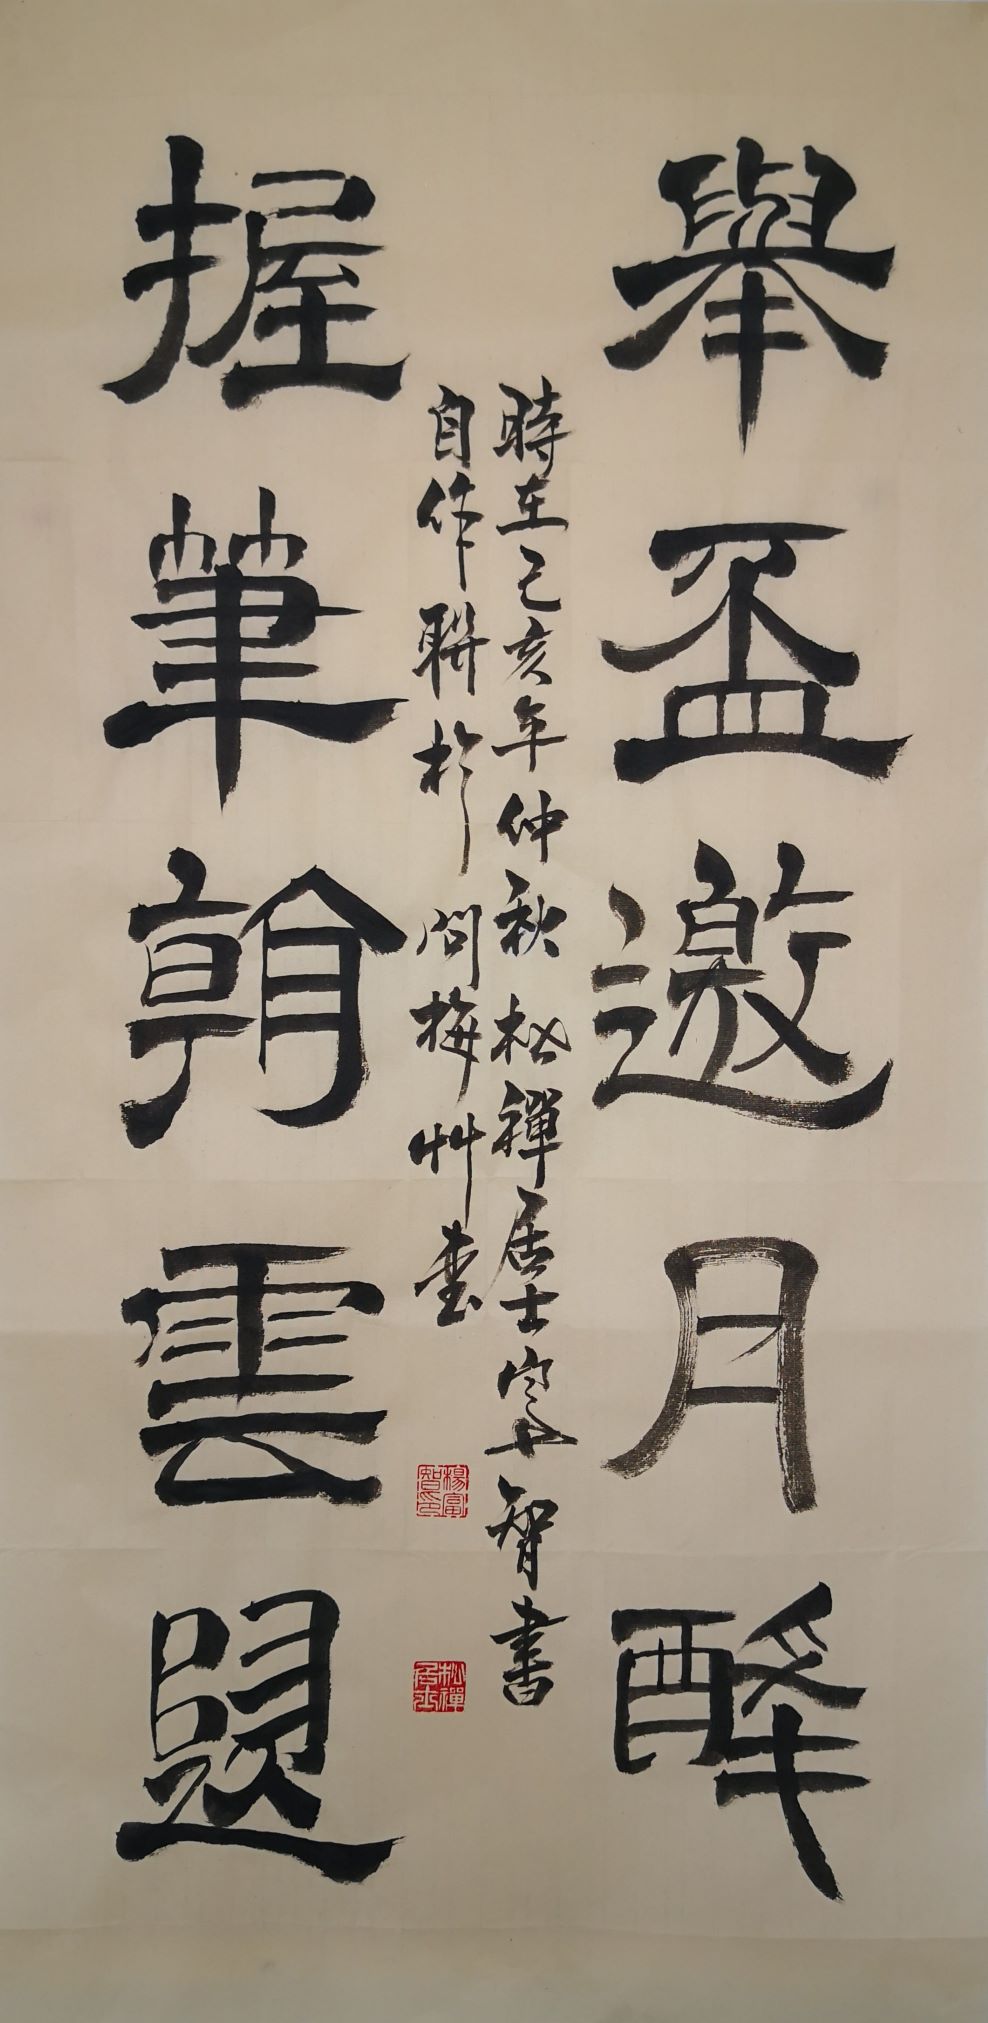 舉盃邀月醉
握筆翰雲題
時在己亥年仲秋 松禪居士富智書
自作聯於 問梅艸堂
楊富智印
松禪居士